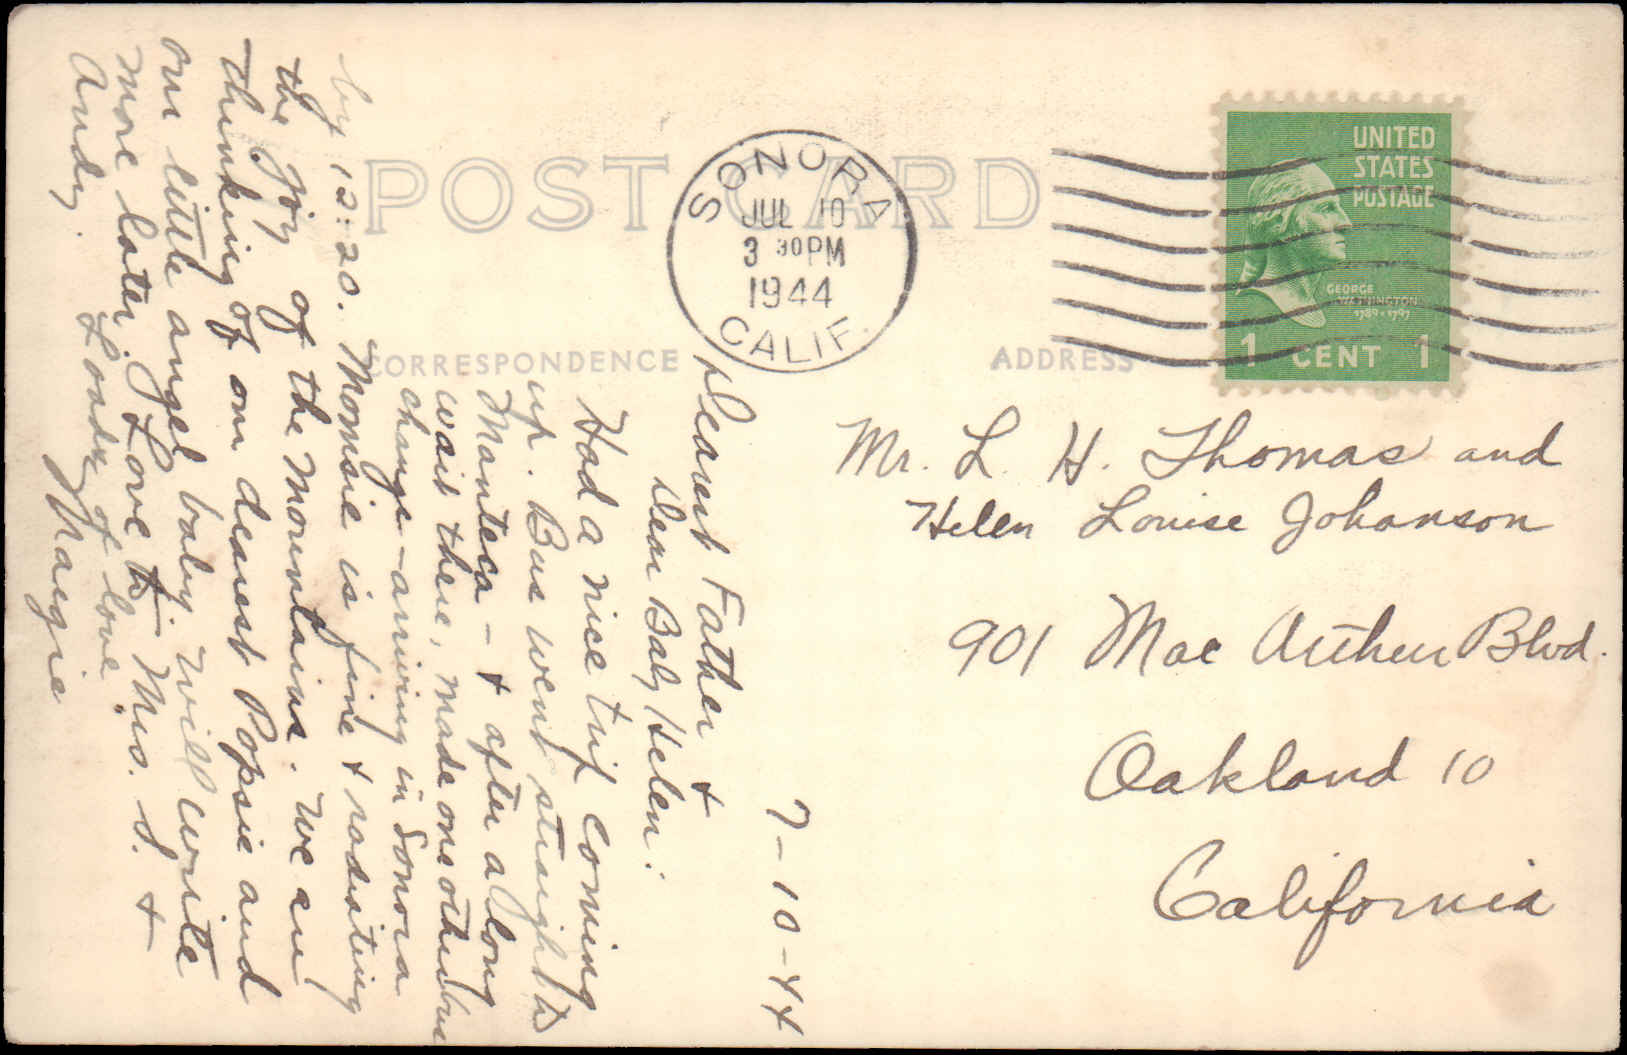 POST CARD
CORRESPONDENCE
ADDRESS
SONORA
JUL 10
3 30PM
1944
CALIF.
UNITED
STATES
POSTAGE
GEORGE
WASHINGTON
1789-1797
1 CENT 1
Mr. L. H. Thomas and
Helen Louise Johanson
901 Mac Arthur Blvd.
Oakland 10
California
7-10-44
Dearest Father +
Dear Baby Helen:
Had a nice trip coming
up. Bus went straight to
Manteca - + after a long
wait there, made one other bus
change - arriving in Sonora
by 12:20. Momsie is fine + radiating
the joy of the mountains. We are
thinking of our dearest Popsie and
our little angel baby. Will write
more later. Love to Mrs. S. +
Andy. Loads of love
Margie